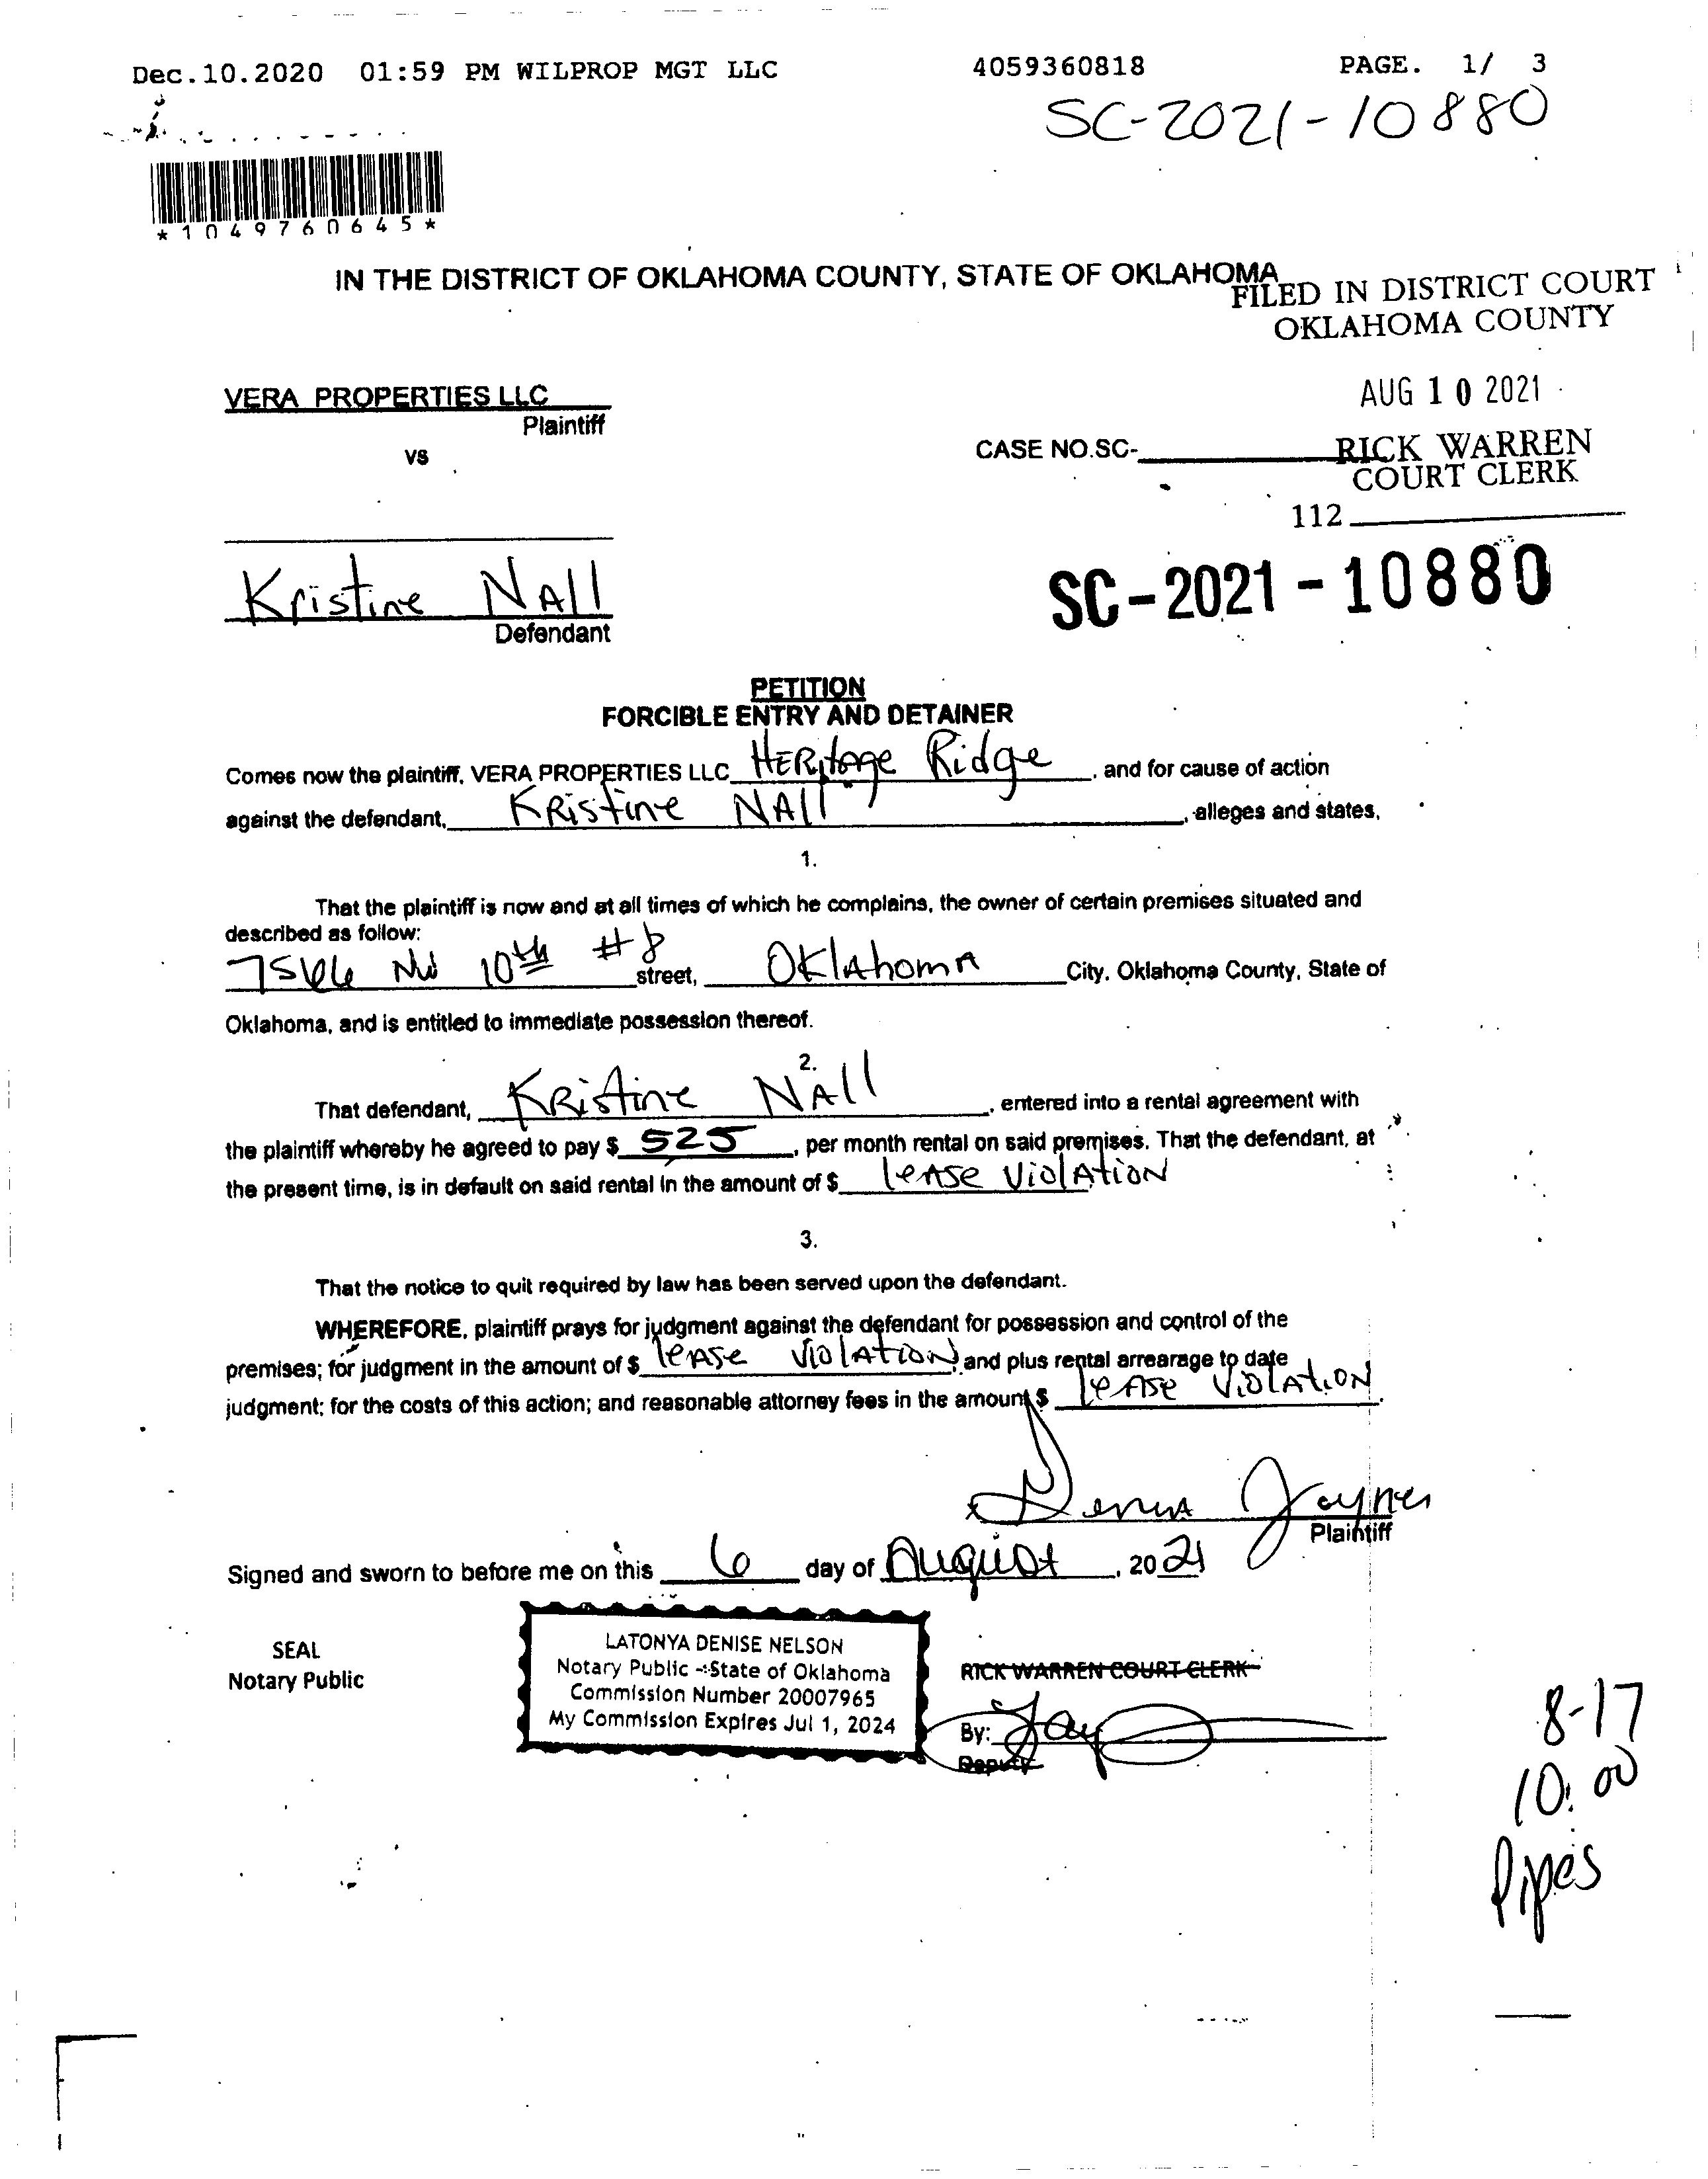 Dec.10.2020 01:59 PM WILPROP MGT LLC 4059360818 PAGE. 1/ 3
SC-2021-10880
*1049760645*
IN THE DISTRICT OF OKLAHOMA COUNTY, STATE OF OKLAHOMA
FILED IN DISTRICT COURT
OKLAHOMA COUNTY
VERA PROPERTIES LLC
Plaintiff
AUG 10 2021
vs
CASE NO.SC-
RICK WARREN
COURT CLERK
112
Kristine NAll
Defendant
SC-2021-10880
PETITION
FORCIBLE ENTRY AND DETAINER
Comes now the plaintiff, VERA PROPERTIES LLC HERitage Ridge, and for cause of action
against the defendant, KRistine NAll, alleges and states,
1.
That the plaintiff is now and at all times of which he complains, the owner of certain premises situated and
described as follow:
NW 10th #8 street, OKlAhomA City, Oklahoma County, State of
Oklahoma, and is entitled to immediate possession thereof.
2.
That defendant, KRistine NAll, entered into a rental agreement with
the plaintiff whereby he agreed to pay $ 525, per month rental on said premises. That the defendant, at
the present time, is in default on said rental in the amount of $ leASe ViolAtioN
3.
That the notice to quit required by law has been served upon the defendant.
WHEREFORE, plaintiff prays for judgment against the defendant for possession and control of the
premises; for judgment in the amount of $ leASe ViolAtioN, and plus rental arrearage to date
judgment; for the costs of this action; and reasonable attorney fees in the amount $ leASe ViolAtioN.
Jaynes
Plaintiff
Signed and sworn to before me on this 6 day of August, 2021
SEAL
Notary Public
LATONYA DENISE NELSON
Notary Public - State of Oklahoma
Commission Number 20007965
My Commission Expires Jul 1, 2024
RICK WARREN COURT CLERK
By:
Deputy
8-17
10:00
Pipes